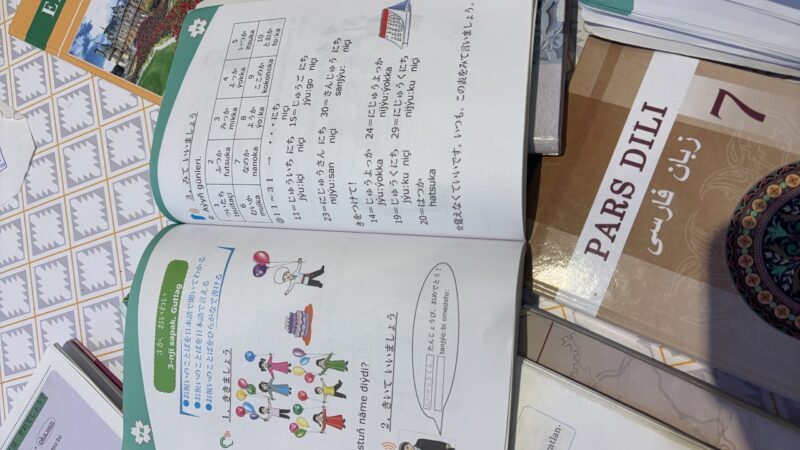 3か おいわい
3-nji sapak. Gutlag
●お祝いのことばを日本語で聞いてわかる
●お祝いのことばを日本語で言える
●お祝いのことばをひらがなで書ける
1. ききましょう
stuň näme diýdi?
2. きいて いいましょう
たんじょうび、おめでとう!
tanjýo:bi omedeto:
3. みて いいましょう
Aýyň günleri.
1 2 3 4 5
ついたち ふつか みっか よっか いつか
tsuitaçi futsuka mikka ýokka itsuka
6 7 8 9 10
むいか なのか ようか ここのか とおか
muika nanoka ýo:ka kokonoka to:ka
◎11~31 → ・・・にち
niçi
11=じゅういち にち 15=じゅうご にち
jýu:içi niçi jýu:go niçi
23=にじゅうさん にち 30=さんじゅう にち
nijýu:san niçi sanjýu: niçi
きをつけて!
14=じゅうよっか 24=にじゅうよっか
jýu:ýokka nijýu:ýokka
19=じゅうくにち 29=にじゅうくにち
jýu:ku niçi nijýu:ku niçi
20=はつか
hatsuka
☆覚えなくていいです。いつも、この表をみて言いましょう。
PARS DILI
زبان فارسی
7